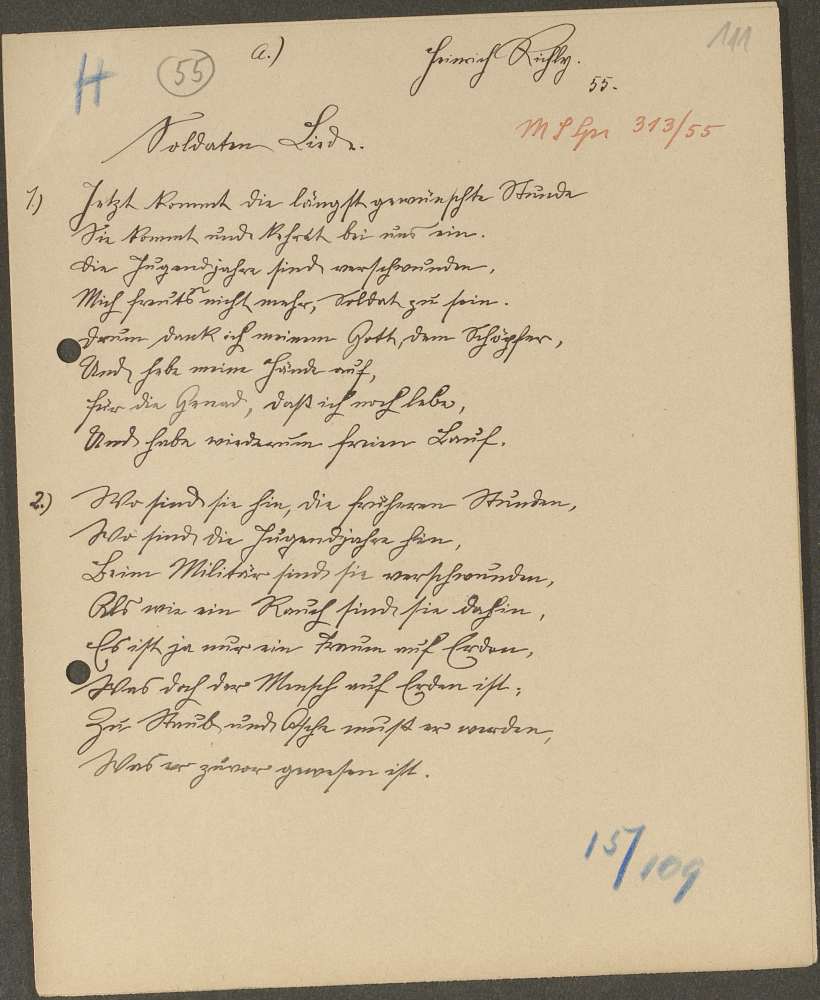 111
H
55
a.)
Heinrich Richly.
55.
Soldaten Liede.
313/55
1.) Jetzt kommt die längst gewünschte Stunde
Sie kommt und kehret bei uns ein.
Die Jugendjahre sind verschwunden,
Mich freuts nicht mehr, Soldat zu sein.
Drum dank ich meinem Gott, dem Schöpfer,
Und hebe meine Hände auf,
Für die Genad, daß ich noch lebe,
Und habe wiederum freien Lauf.
2.) Wo sind sie hin, die früheren Stunden,
Wo sind die Jugendjahre hin,
Beim Militär sind sie verschwunden,
Als wie ein Rauch sind sie dahin,
Es ist ja nur ein Traum auf Erden,
Was doch der Mensch auf Erden ist;
Zu Staub und Asche muß er werden,
Was er zuvor gewesen ist.
15/109